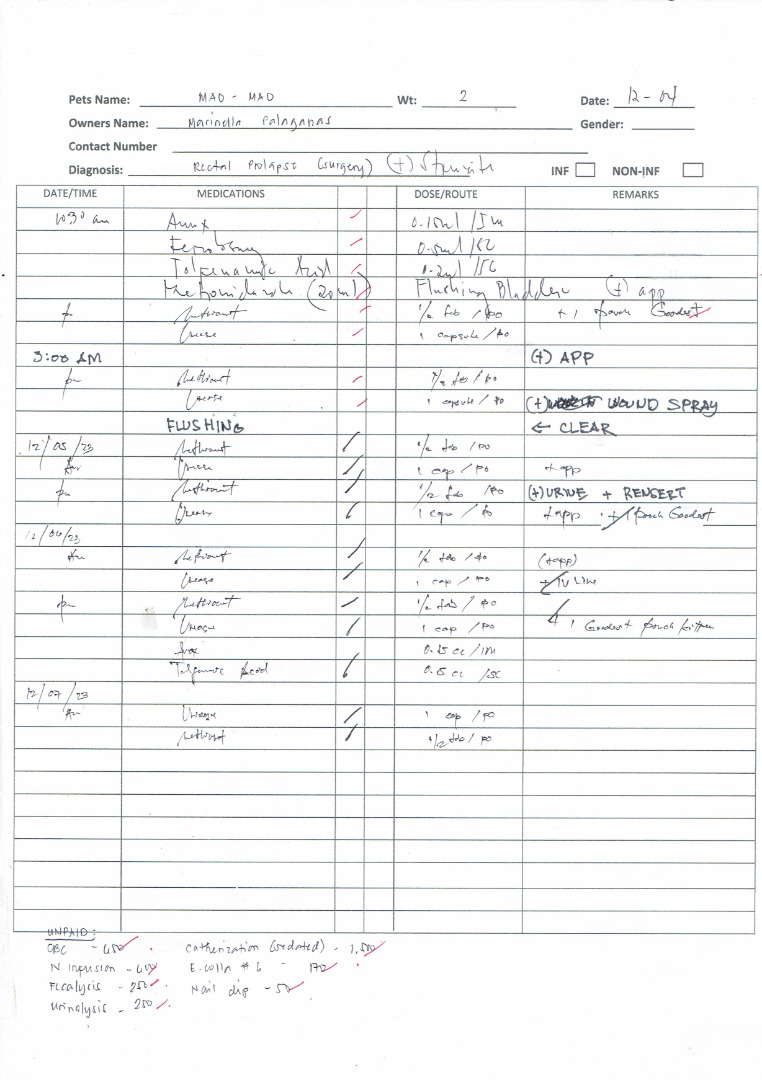 Pets Name: MAD - MAD Wt: 2 Date: 12-04
Owners Name: Marinella Palaganas Gender:
Contact Number
Diagnosis: Rectal Prolapse (surgery) (+) Struvite INF NON-INF
DATE/TIME MEDICATIONS DOSE/ROUTE REMARKS
1030 am 0.15ml / IM
0.5ml
Tolfenamic Acid 0.2ml / SC
Metronidazole (20ml) Flushing Bladder (+) app
pm Methiovet 1/2 tab / PO + 1 pouch Goodest
1 capsule / PO
3:00 AM (+) APP
pm Methiovet 1/2 tab / PO
1 capsule / PO (+) WOUND SPRAY
FLUSHING ← CLEAR
12/05/23 Methiovet 1/2 tab / PO
Am 1 cap / PO + app
pm Methiovet 1/2 tab / PO (+) URINE + RENSERT
1 cap / PO + app + 1 pouch Goodest
12/06/23
Am Methiovet 1/2 tab / PO (+app)
1 cap / PO + IV Line
pm Methiovet 1/2 tab / PO
1 cap / PO 1 Goodest pouch kitten
0.25 cc / IM
Acid 0.5 cc / SC
12/07/23
Am 1 cap / PO
Methiovet 1/2 tab / PO
UNPAID:
CBC - 650 Catherization (sedated) - 1,500
N infusion - 600 E. colla # 6 - 170
Fecalysis - 250 Nail clip - 50
Urinalysis - 250